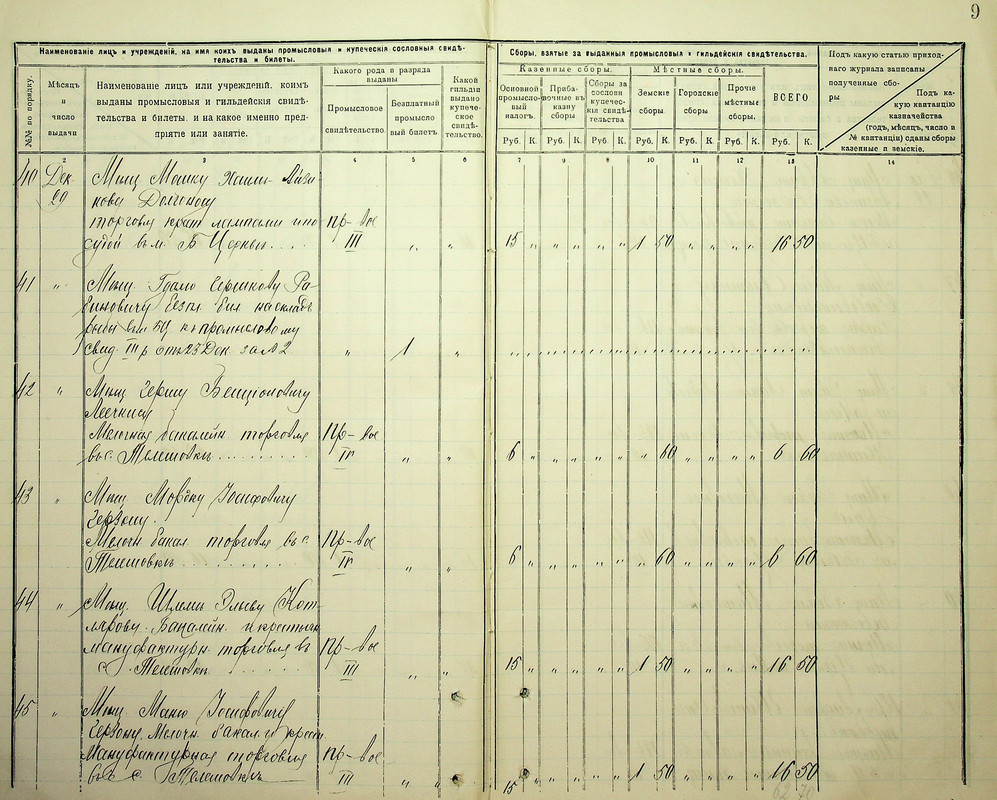 9
Наименованіе лицъ и учрежденій, на имя коихъ выданы промысловыя и купеческія сословныя свидѣ-
тельства и билеты.
Сборы, взятые за выданныя промысловыя и гильдейскія свидѣтельства.
Подъ какую статью приход-
наго журнала записаны
полученные сбо-
ры
Подъ ка-
кую квитанцію
казначейства
(годъ, мѣсяцъ, число и
№ квитанціи) сданы сборы
казенные и земскіе.
№№ по порядку.
Мѣсяцъ
и
число
выдачи
Наименованіе лицъ или учрежденій, коимъ
выданы промысловыя и гильдейскія свидѣ-
тельства и билеты, и на какое именно пред-
пріятіе или занятіе.
Какого рода и разряда
выданы
Промысловое
свидѣтельство.
Безплатный
промысло
вый билетъ.
Какой
гильдіи
выдано
купече-
ское
свидѣ-
тельство.
Казенные сборы.
Мѣстные сборы.
Основной
промысло-
вый
налогъ.
Приба-
вочные въ
казну
сборы
Сборы за
сословн
купечес-
кія свидѣ-
тельства
Земскіе
сборы.
Городскіе
сборы.
Прочіе
мѣстные
сборы.
ВСЕГО
Руб. К. Руб. К. Руб. К. Руб. К. Руб. К. Руб. К. Руб. К.
2 3 4 5 6 7 8 9 10 11 12 13 14
40 Дек. Мѣщ. Мошку Хаим-
29
торговля крат лампами и по
судой въ м. Б Церкви . . . . Пр-вое III „ „ 15 „ „ „ „ „ 1 50 „ „ „ „ 16 50
41 „ Мѣщ. Ра-
биновичу на складъ
рыбы въ м БЦ къ промысловому
свид. III р отъ 23 Дек за № 2 „ 1 „
42 „ Мѣщ. Гершу Бенціоновичу
Мелочная бакалейн. торговля Пр-вое
въ с. Телешовкѣ . . . . . . . . IV „ „ 6 „ „ „ „ „ „ 60 „ „ „ „ 6 60
43 „ Мѣщ. Мордку Іосифовичу
Герзону.
Мелочн бакал торговля въ с. Пр-вое
Телешовкѣ . . . . . . . IV „ „ 6 „ „ „ „ „ „ 60 „ „ „ „ 6 60
44 „ Мѣщ. Шлема Эльеву Кот-
лярову. Бакалейн. и
мануфактурн торговля въ Пр-вое
с. Телешовкѣ . . . . . III „ „ 15 „ „ „ „ „ 1 50 „ „ „ „ 16 50
45 „ Мѣщ. Іосифовичу
Герзону. Мелочн. бакал и
Мануфактурная торговля Пр-вое
въ с. Телешовкѣ III „ „ 15 „ „ „ „ „ 1 50 „ „ „ „ 16 50
62 70